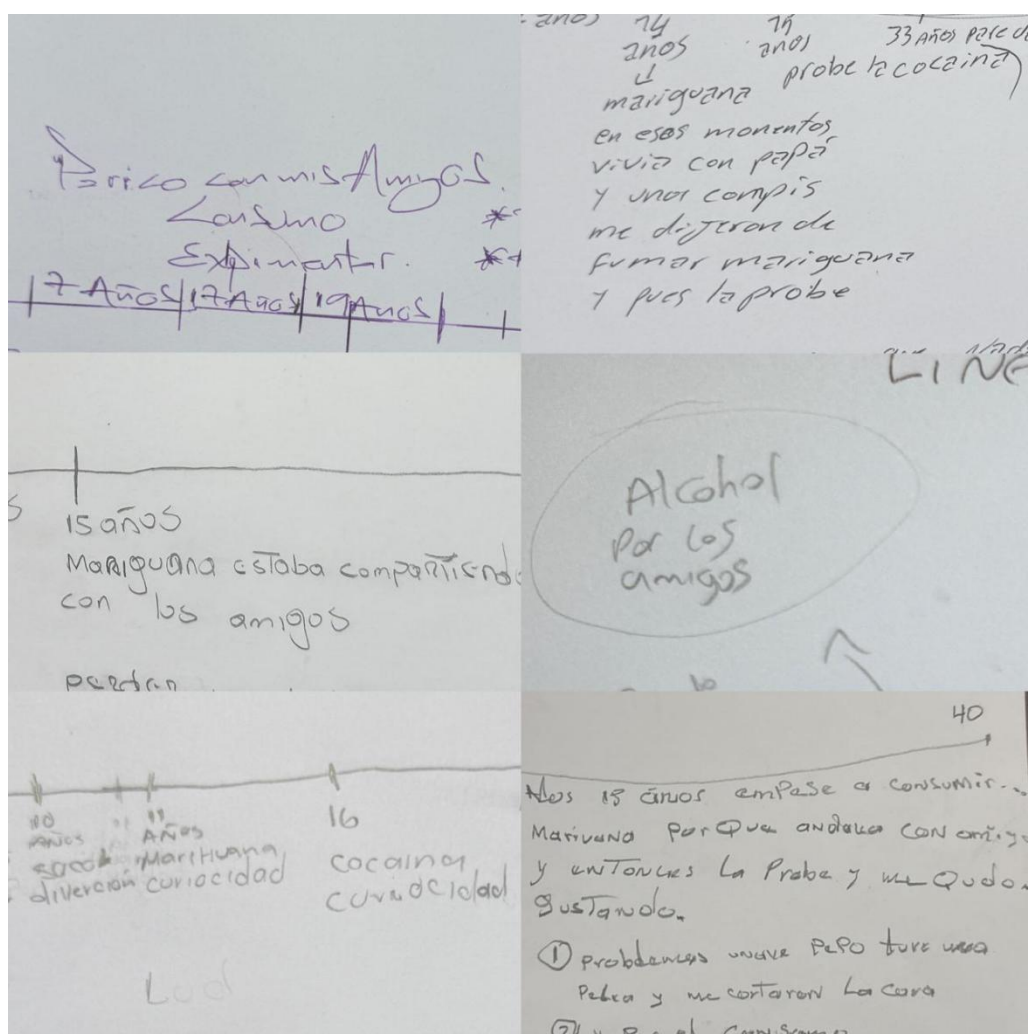 Perico con mis Amigos.
Consumo
Expimentar.
7 Años 17 Años 19 Años
años 14 años
años 33 Años pare de
mariguana probe la cocaina
en esos momentos
vivia con papá
y unos compis
me dijeron de
fumar mariguana
y pues la probe
15 años
Mariguana estaba compartiendo
con los amigos
LINE
Alcohol
Por los
amigos
10 11 16
AÑOS AÑOS cocaina
Marihuana curiocidad
diverción curiocidad
40
15 años empase a consumir...
Marivana PorQue andaba con amigo
y enTonces La Probe y me Qudo
gusTando.
① probdemas PePo tuve una
Pelea y me cortaron La Cara